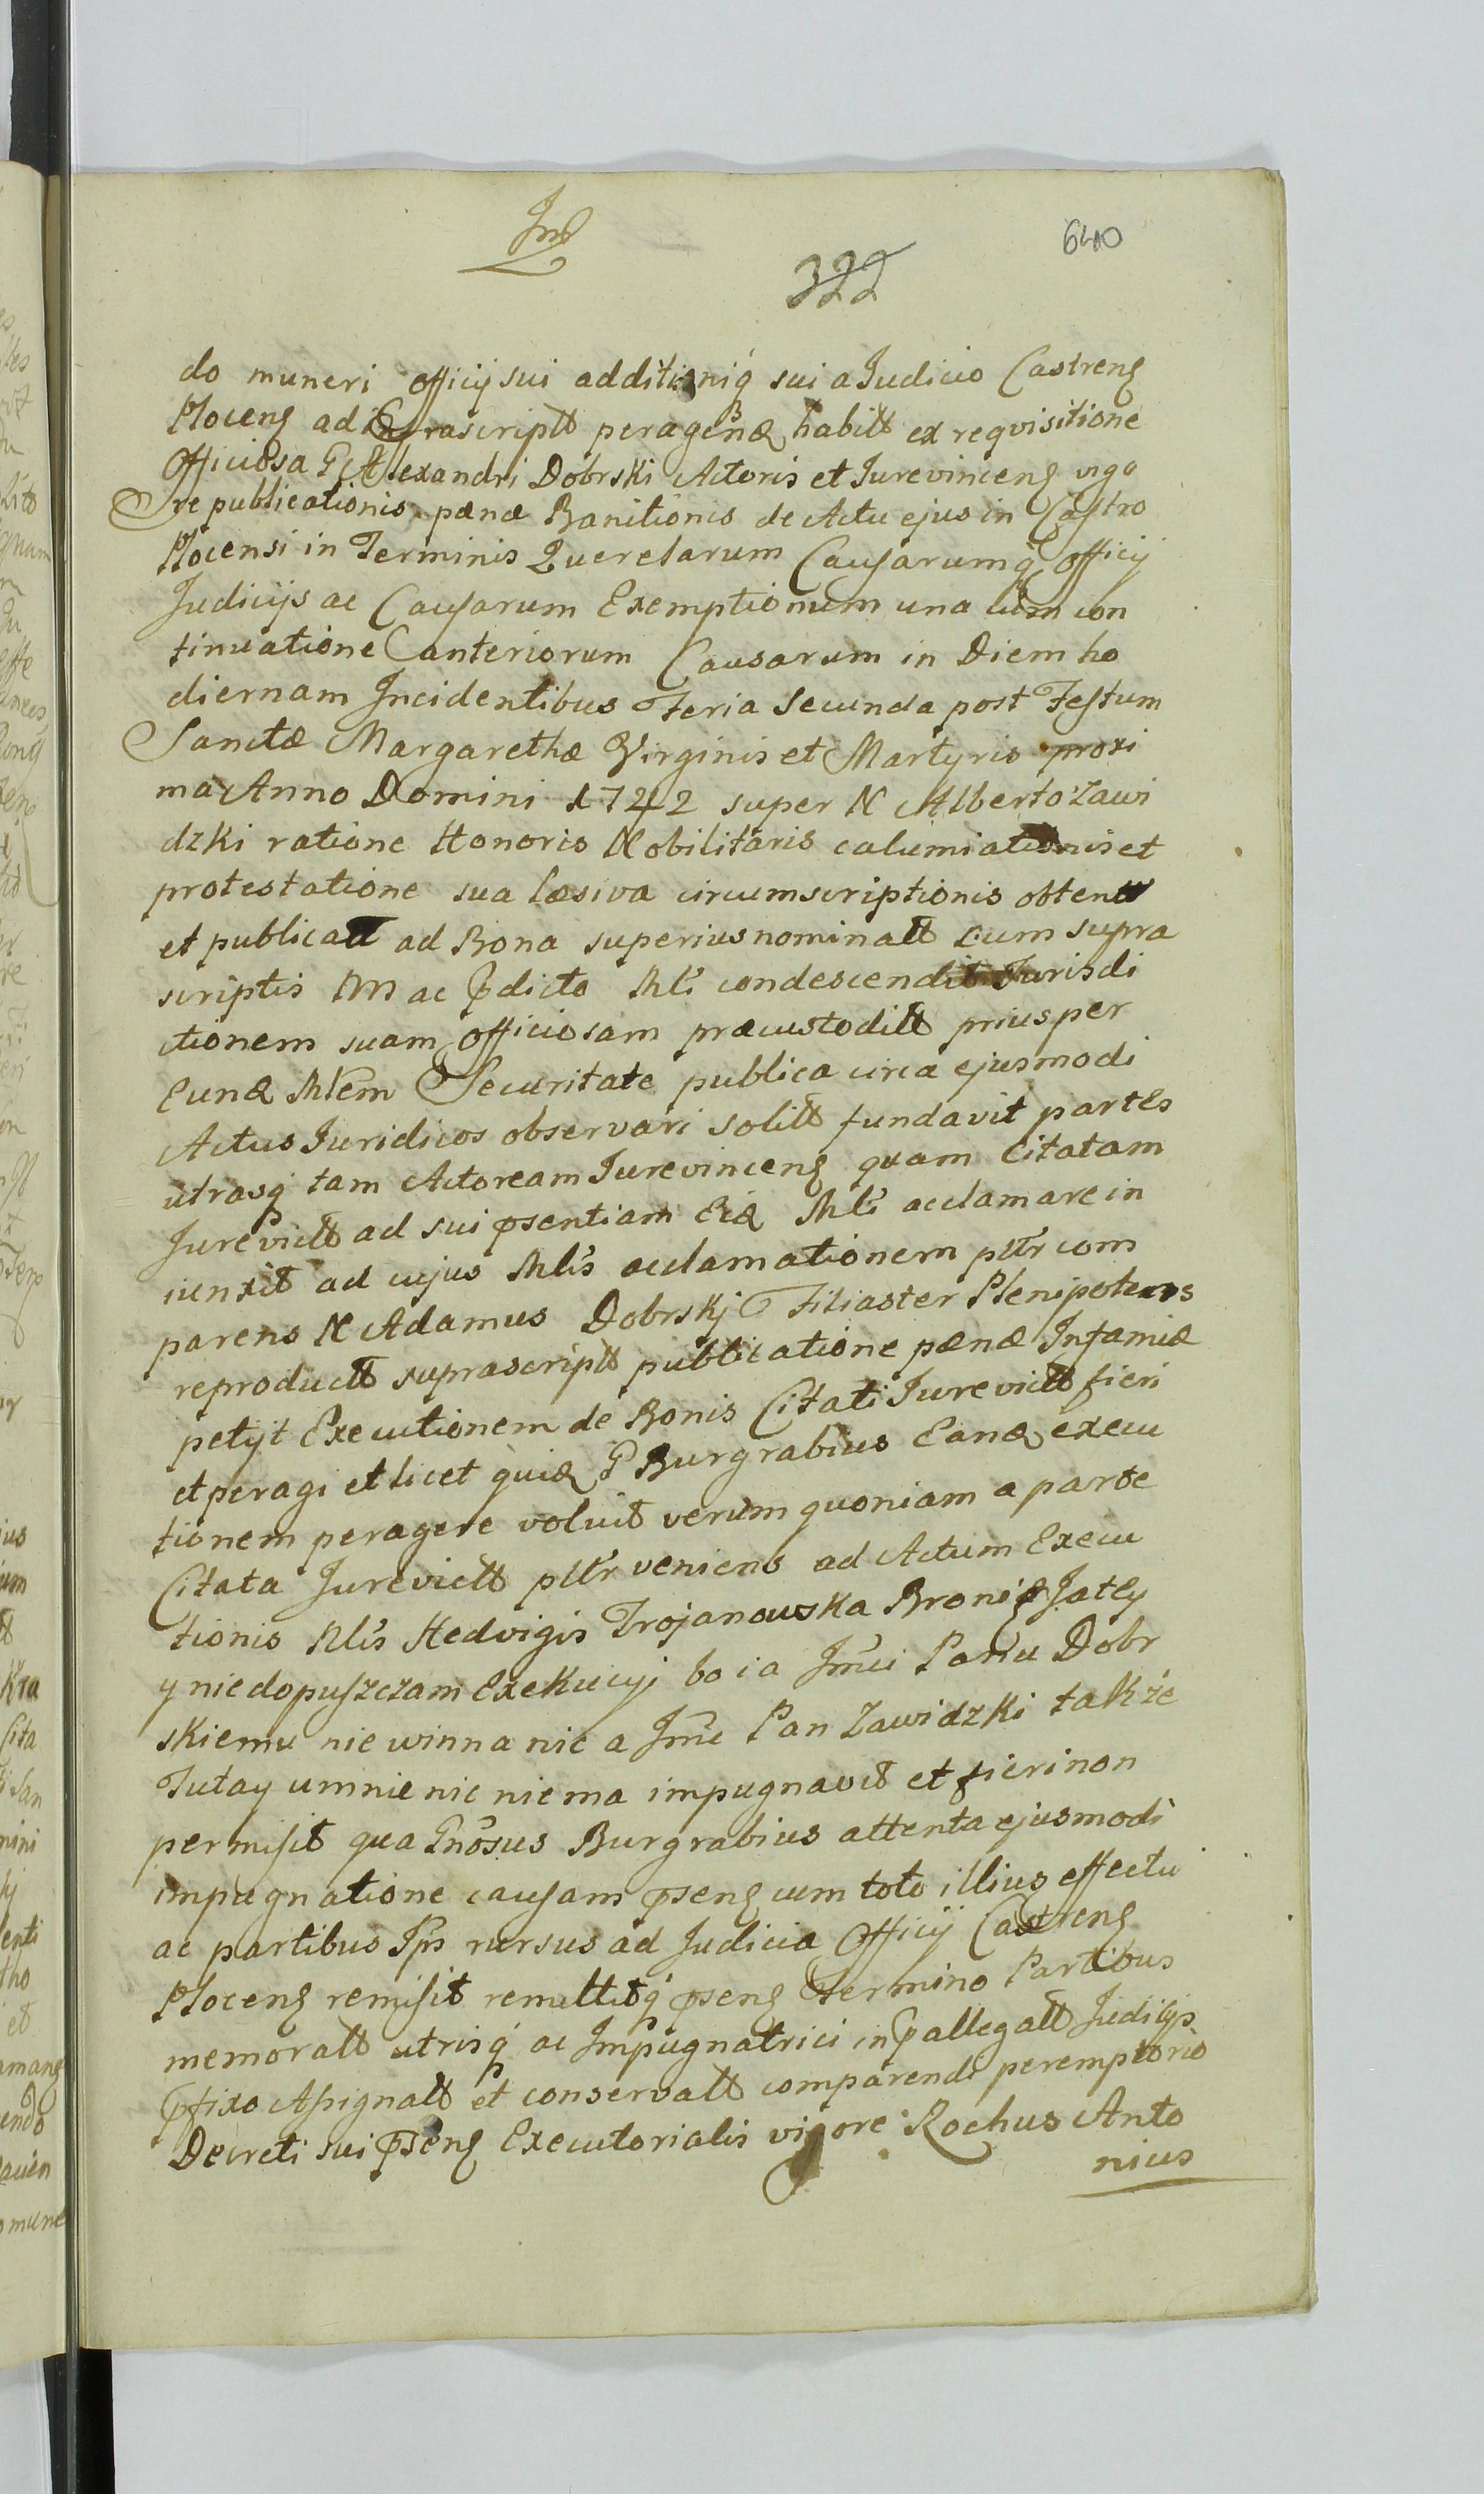 Ind
640
322
do muneri officij sui additioniq́ sui a Judicio Castrenȩ
Plocenȩ ad infrascriptt peragenȩ habitt ex reqvisitione
Officiosa G Alexandri Dobrski Actoris et Jurevincenȩ vigo
re publicationis pænæ Banitionis de Actu ejus in Castro
Plocensi in Terminis Querelarum Causarumq́ officij
Judicijs ac Causarum Exemptionum una cum con
tinuatione anteriorum Causarum in Diem ho
diernam Incidentibus Feria Secunda post Festum
Sanctæ Margarethæ Virginis et Martyris proxi
ma Anno Domini 1742 super N Alberto Zawi
dzki ratione Honoris Nobilitaris calumiationis et
protestatione sua læsiva circumscriptionis obtentt
et publicatt ad Bona superius nominatt cum supra
scriptis NN ac pdicto Mlĩ condescendit Jurisdi
ctionem suam officiosam præcustoditt prius per
Eunȩ Mlem Securitate publica circa ejusmodi
Actus Juridicos observari solitt fundavit partes
utrasq́ tam Actoream Jurevincenȩ quam Citatam
Jurevictt ad sui psentiam Eiȩ Mlĩ acclamare in
iunxit ad cujus Mlĩs acclamationem pttr com
parens N Adamus Dobrskj Filiaster Plenipotens
reproductt suprascriptt publicatione pænæ Infamiæ
petijt Executionem de Bonis Citati Jurevictt fieri
et peragi et licet quiȩ G Burgrabius Eanȩ execu
tionem peragere voluit verum quoniam a parte
Citata Jurevictt pttr veniens ad Actum Execu
tionis Nlĩs Hedvigis Trojanowska Bronię Jatey
y niedopuszczam Exekucyi bo ia Jmci Panu Dobr
skiemu nie winna nic a Jmć Pan Zawidzki także
Tutay umnie nic niema impugnavit et fieri non
permisit qua Gnõsus Burgrabius attenta ejusmodi
impugnatione causam psenȩ cum toto illius effectu
ac partibus Ips rursus ad Judicia Officij Castrenȩ
Plocenȩ remisit remittitq́ psenȩ termino Partibus
memoratt utrisq́ ac Impugnatrici in pallegatt Judicijs
pfixo Assignatt et conservatt comparendi peremptorio
Decreti sui psenȩ Executorialis vigore Rochus Anto
nius